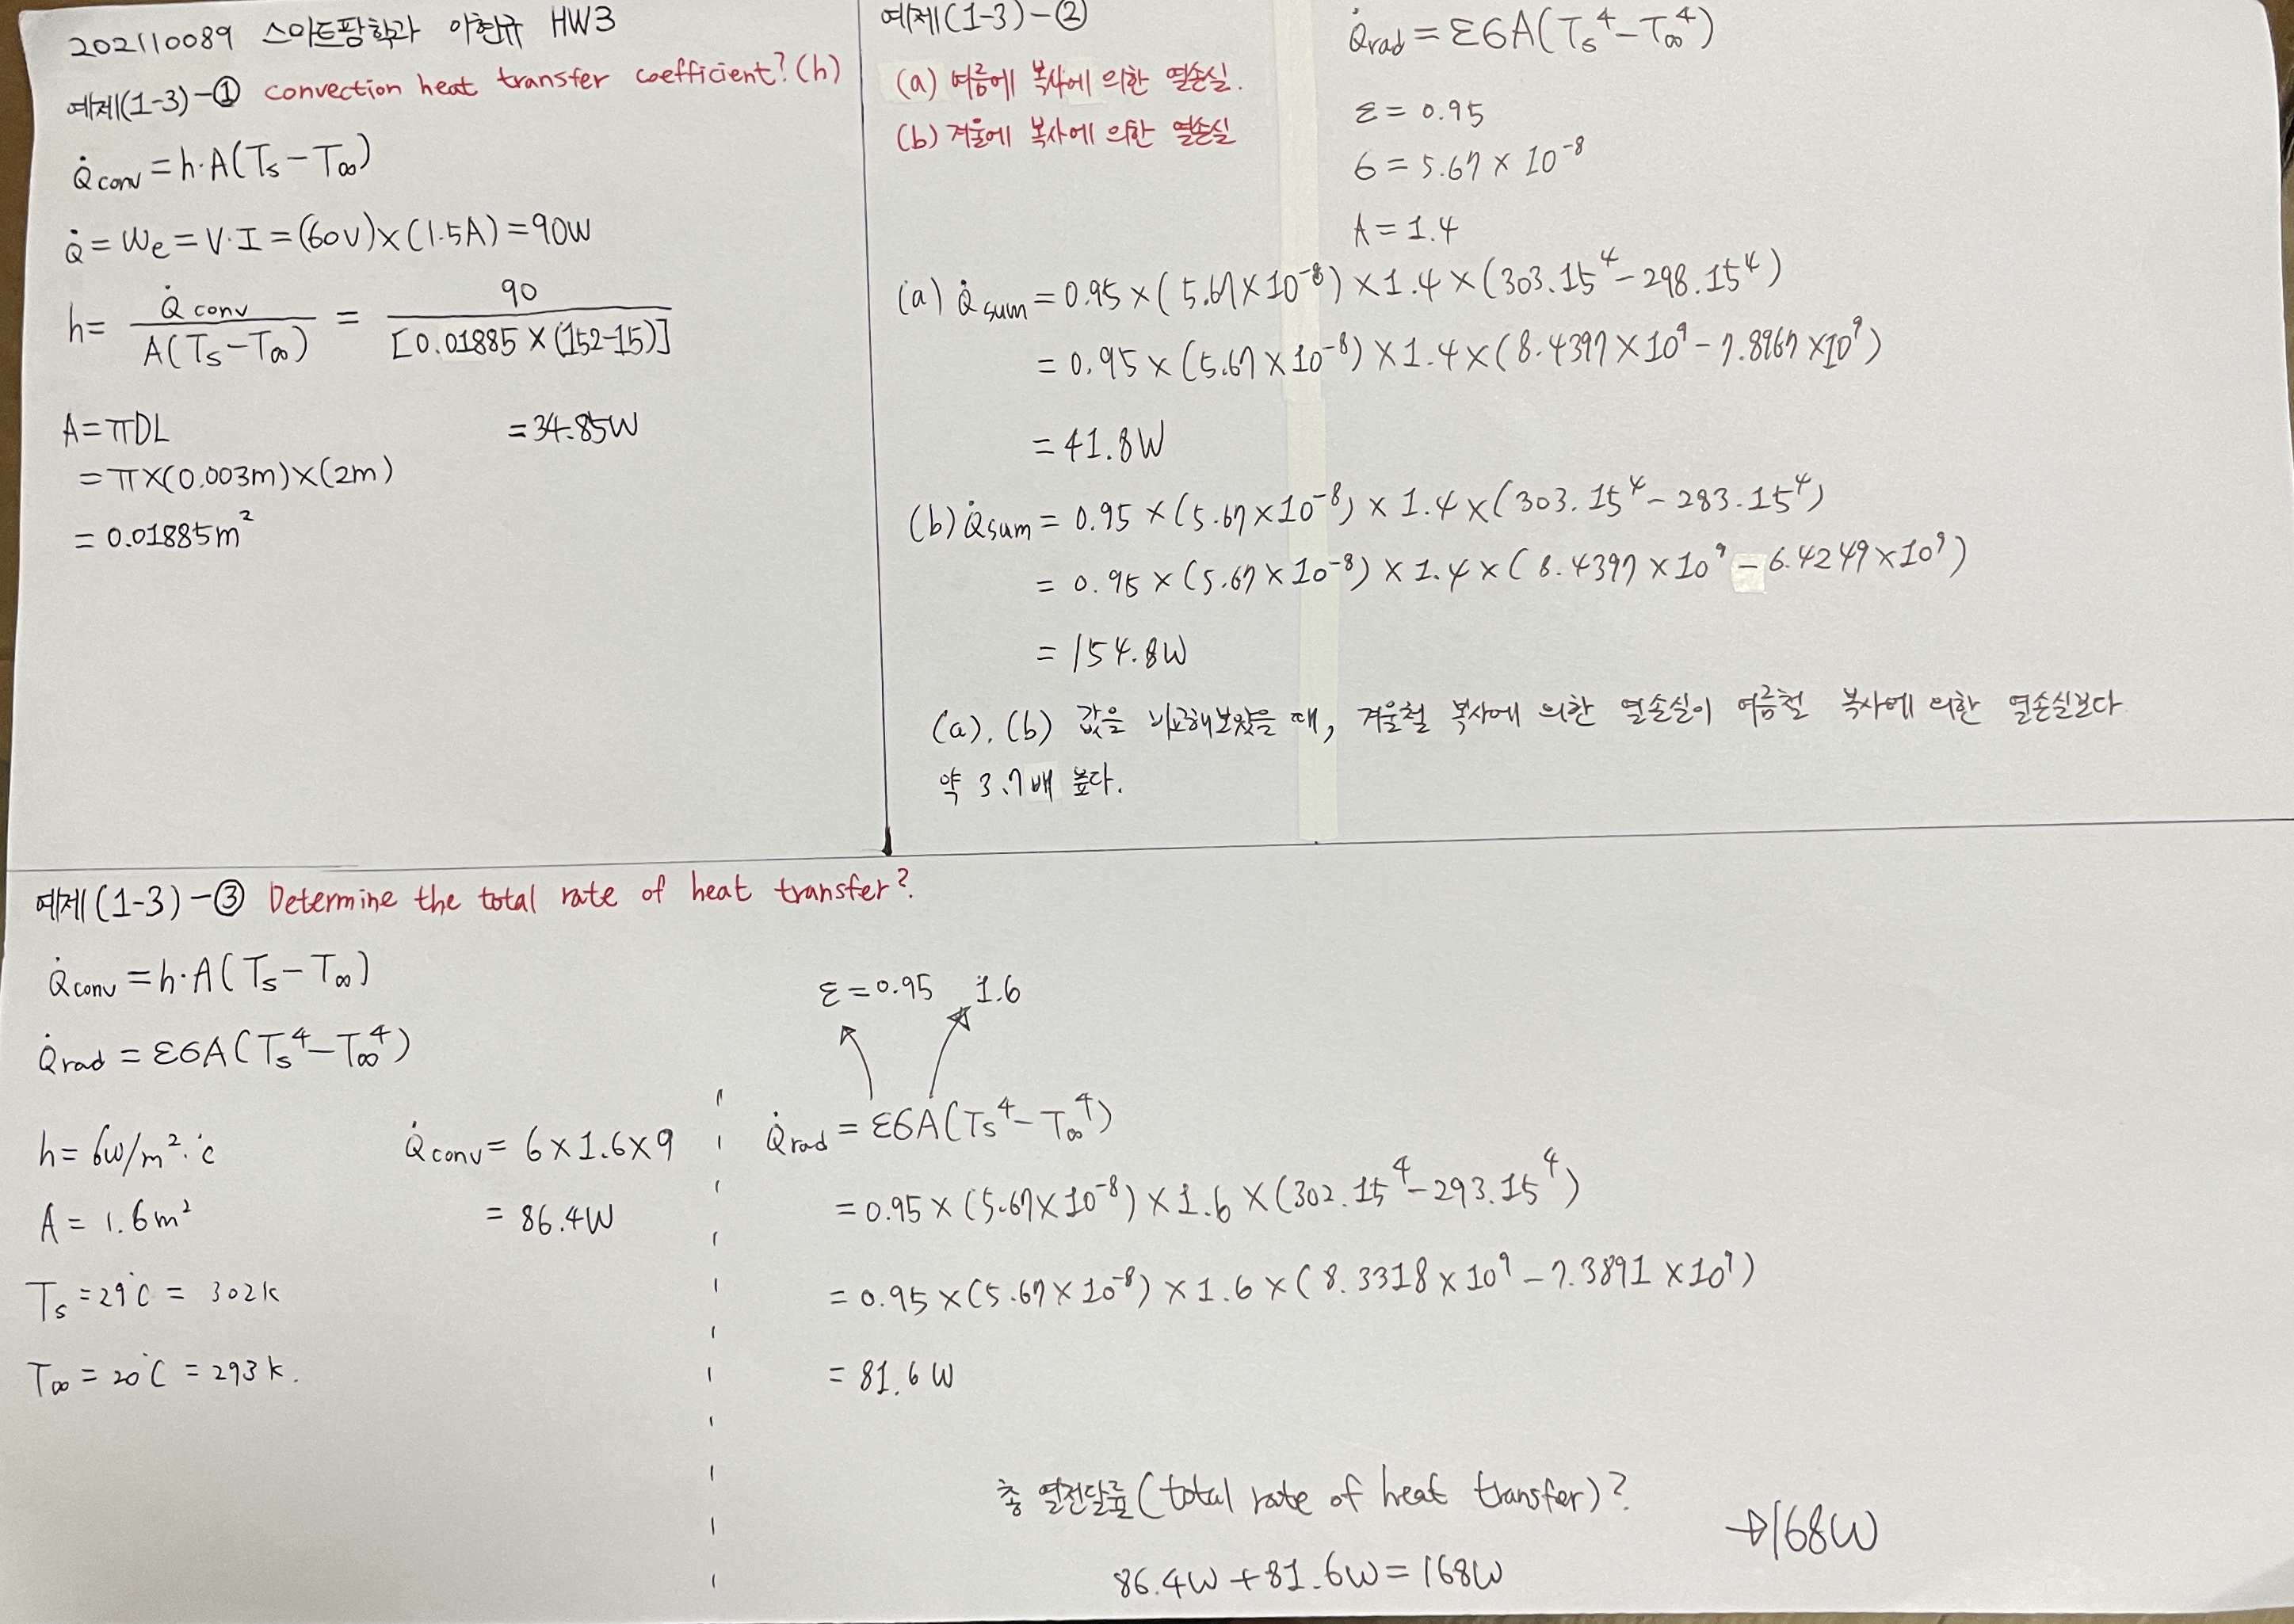 202110089 스마트팜학과 이현규 HW3
예제(1-3)-① convection heat transfer coefficient? (h)
Q̇conv = h·A(Ts-T∞)
Q̇ = We = V·I = (60V)×(1.5A) = 90W
h = Q̇conv / A(Ts-T∞) = 90 / [0.01885×(152-15)]
A = πDL
= 34.85W
= π×(0.003m)×(2m)
= 0.01885m²
예제(1-3)-②
(a) 여름에 복사에 의한 열손실.
(b) 겨울에 복사에 의한 열손실
Q̇rad = εσA(Ts⁴-T∞⁴)
ε = 0.95
σ = 5.67×10⁻⁸
A = 1.4
(a) Q̇sum = 0.95×(5.67×10⁻⁸)×1.4×(303.15⁴-298.15⁴)
= 0.95×(5.67×10⁻⁸)×1.4×(8.4397×10⁹-7.8967×10⁹)
= 41.8W
(b) Q̇sum = 0.95×(5.67×10⁻⁸)×1.4×(303.15⁴-283.15⁴)
= 0.95×(5.67×10⁻⁸)×1.4×(8.4397×10⁹-6.4249×10⁹)
= 154.8W
(a), (b) 값을 비교해보았을 때, 겨울철 복사에 의한 열손실이 여름철 복사에 의한 열손실보다
약 3.7배 높다.
예제(1-3)-③ Determine the total rate of heat transfer?
Q̇conv = h·A(Ts-T∞)
Q̇rad = εσA(Ts⁴-T∞⁴)
h = 6W/m²·°C
A = 1.6m²
Ts = 29°C = 302K
T∞ = 20°C = 293K.
Q̇conv = 6×1.6×9
= 86.4W
ε = 0.95 1.6
Q̇rad = εσA(Ts⁴-T∞⁴)
= 0.95×(5.67×10⁻⁸)×1.6×(302.15⁴-293.15⁴)
= 0.95×(5.67×10⁻⁸)×1.6×(8.3318×10⁹-7.3891×10⁹)
= 81.6W
총 열전달률(total rate of heat transfer)?
86.4W+81.6W=168W
→168W